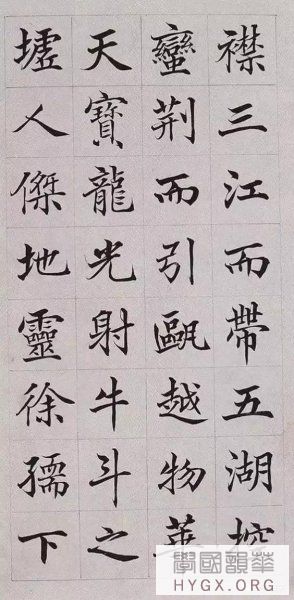 襟三江而帶五湖控
蠻荊而引甌越物華
天寶龍光射牛斗之
墟人傑地靈徐孺下
華韻國學
HYGX.ORG